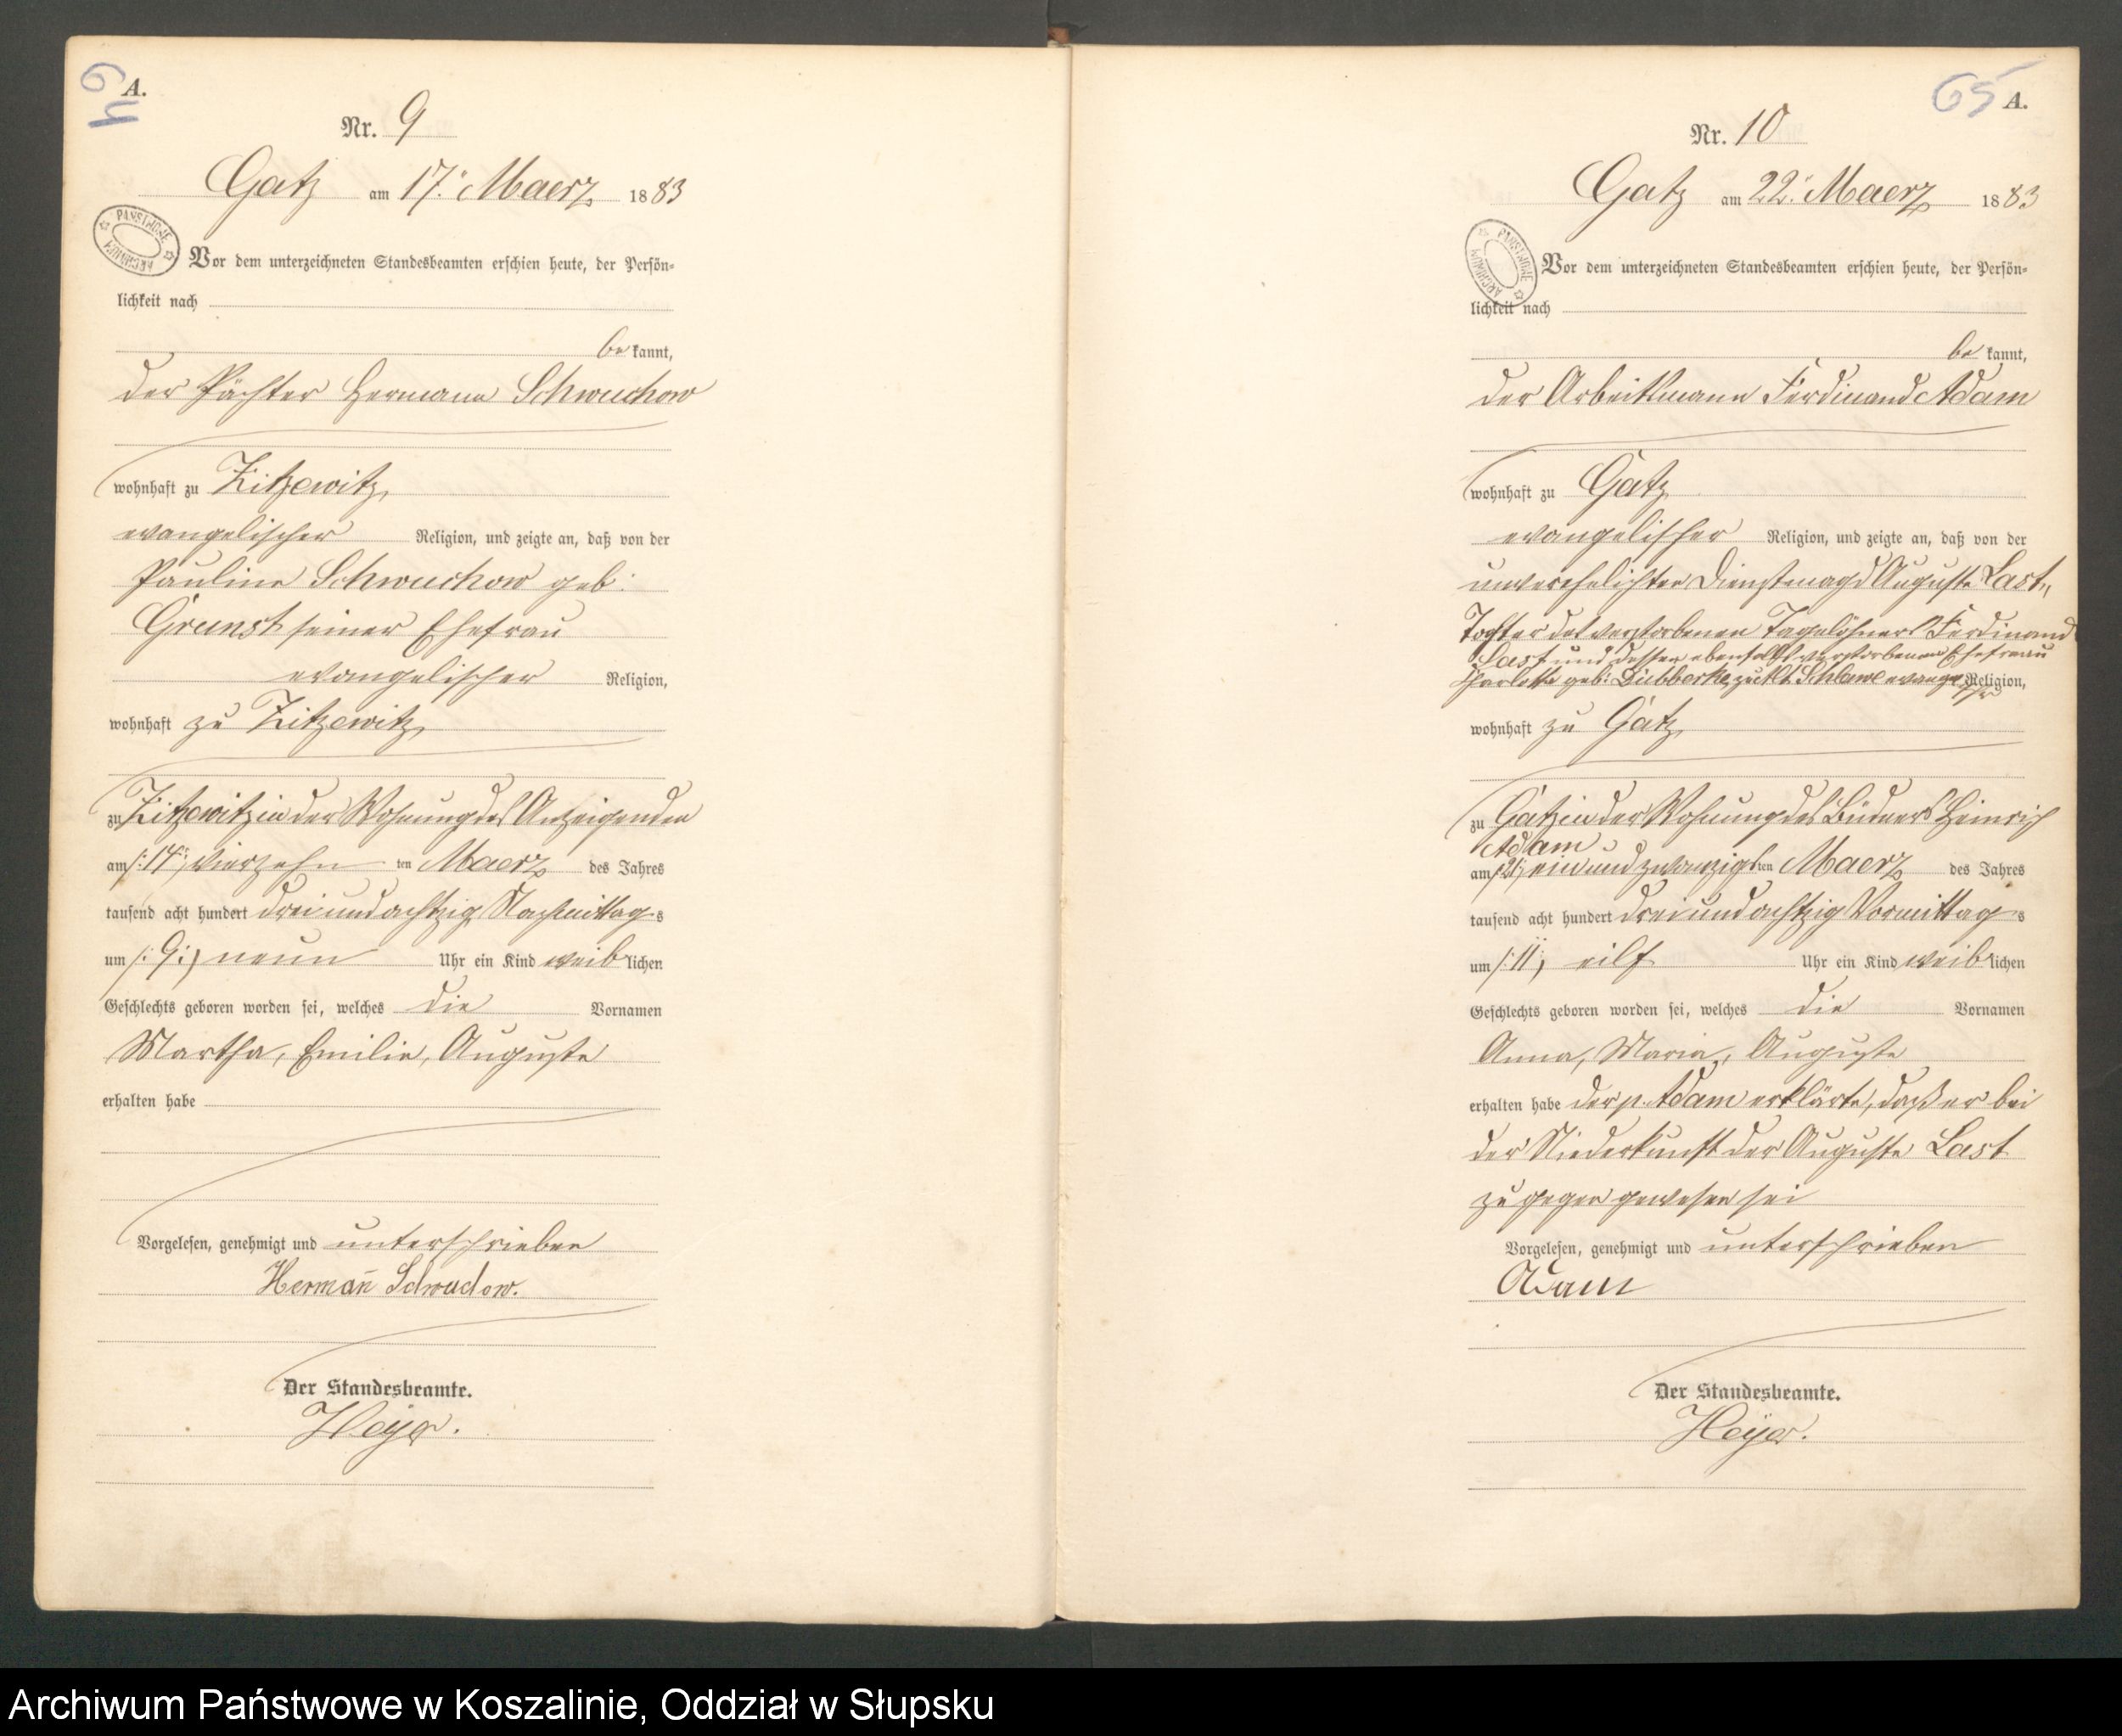 64
A.
Nr. 9
Gatz am 17. Maerz 1883
PAŃSTWOWE ARCHIWUM
Vor dem unterzeichneten Standesbeamten erschien heute, der Persön-
lichkeit nach
be kannt,
der Pächter Hermann Schwuchow
wohnhaft zu Zitzewitz,
evangelischer Religion, und zeigte an, daß von der
Pauline Schwuchow geb:
Grunst seiner Ehefrau
evangelischer Religion,
wohnhaft zu Zitzewitz,
zu Zitzewitz in der Wohnung des Anzeigenden
am /:14:/ vierzehn ten Maerz des Jahres
tausend acht hundert dreiundachtzig Nachmittags
um /:9:/ neun Uhr ein Kind weiblichen
Geschlechts geboren worden sei, welches die Vornamen
Martha, Emilie, Auguste
erhalten habe
Vorgelesen, genehmigt und unterschrieben
Herman̄ Schwuchow.
Der Standesbeamte.
Heyer.
65
A.
Nr. 10
Gatz am 22. Maerz 1883
PAŃSTWOWE ARCHIWUM
Vor dem unterzeichneten Standesbeamten erschien heute, der Persön-
lichkeit nach
be kannt,
der Arbeitsmann Ferdinand Adam
wohnhaft zu Gatz
evangelischer Religion, und zeigte an, daß von der
unverehelichten Dienstmagd Auguste Last,
Tochter des verstorbenen Tagelöhners Ferdinand
Last und dessen ebenfalls verstorbenen Ehefrau
Charlotte geb: Dubberke, Schlawe evangelischer Religion,
wohnhaft zu Gatz,
zu Gatz in der Wohnung des Büdners Heinrich
Adam
am /:21:/ einundzwanzigsten Maerz des Jahres
tausend acht hundert dreiundachtzig Vormittags
um /:11:/ eilf Uhr ein Kind weiblichen
Geschlechts geboren worden sei, welches die Vornamen
Anna, Maria, Auguste
erhalten habe der p. Adam erklärte, daß er bei
der Niederkunft der Auguste Last
zugegen gewesen sei
Vorgelesen, genehmigt und unterschrieben
Adam
Der Standesbeamte.
Heyer.
Archiwum Państwowe w Koszalinie, Oddział w Słupsku